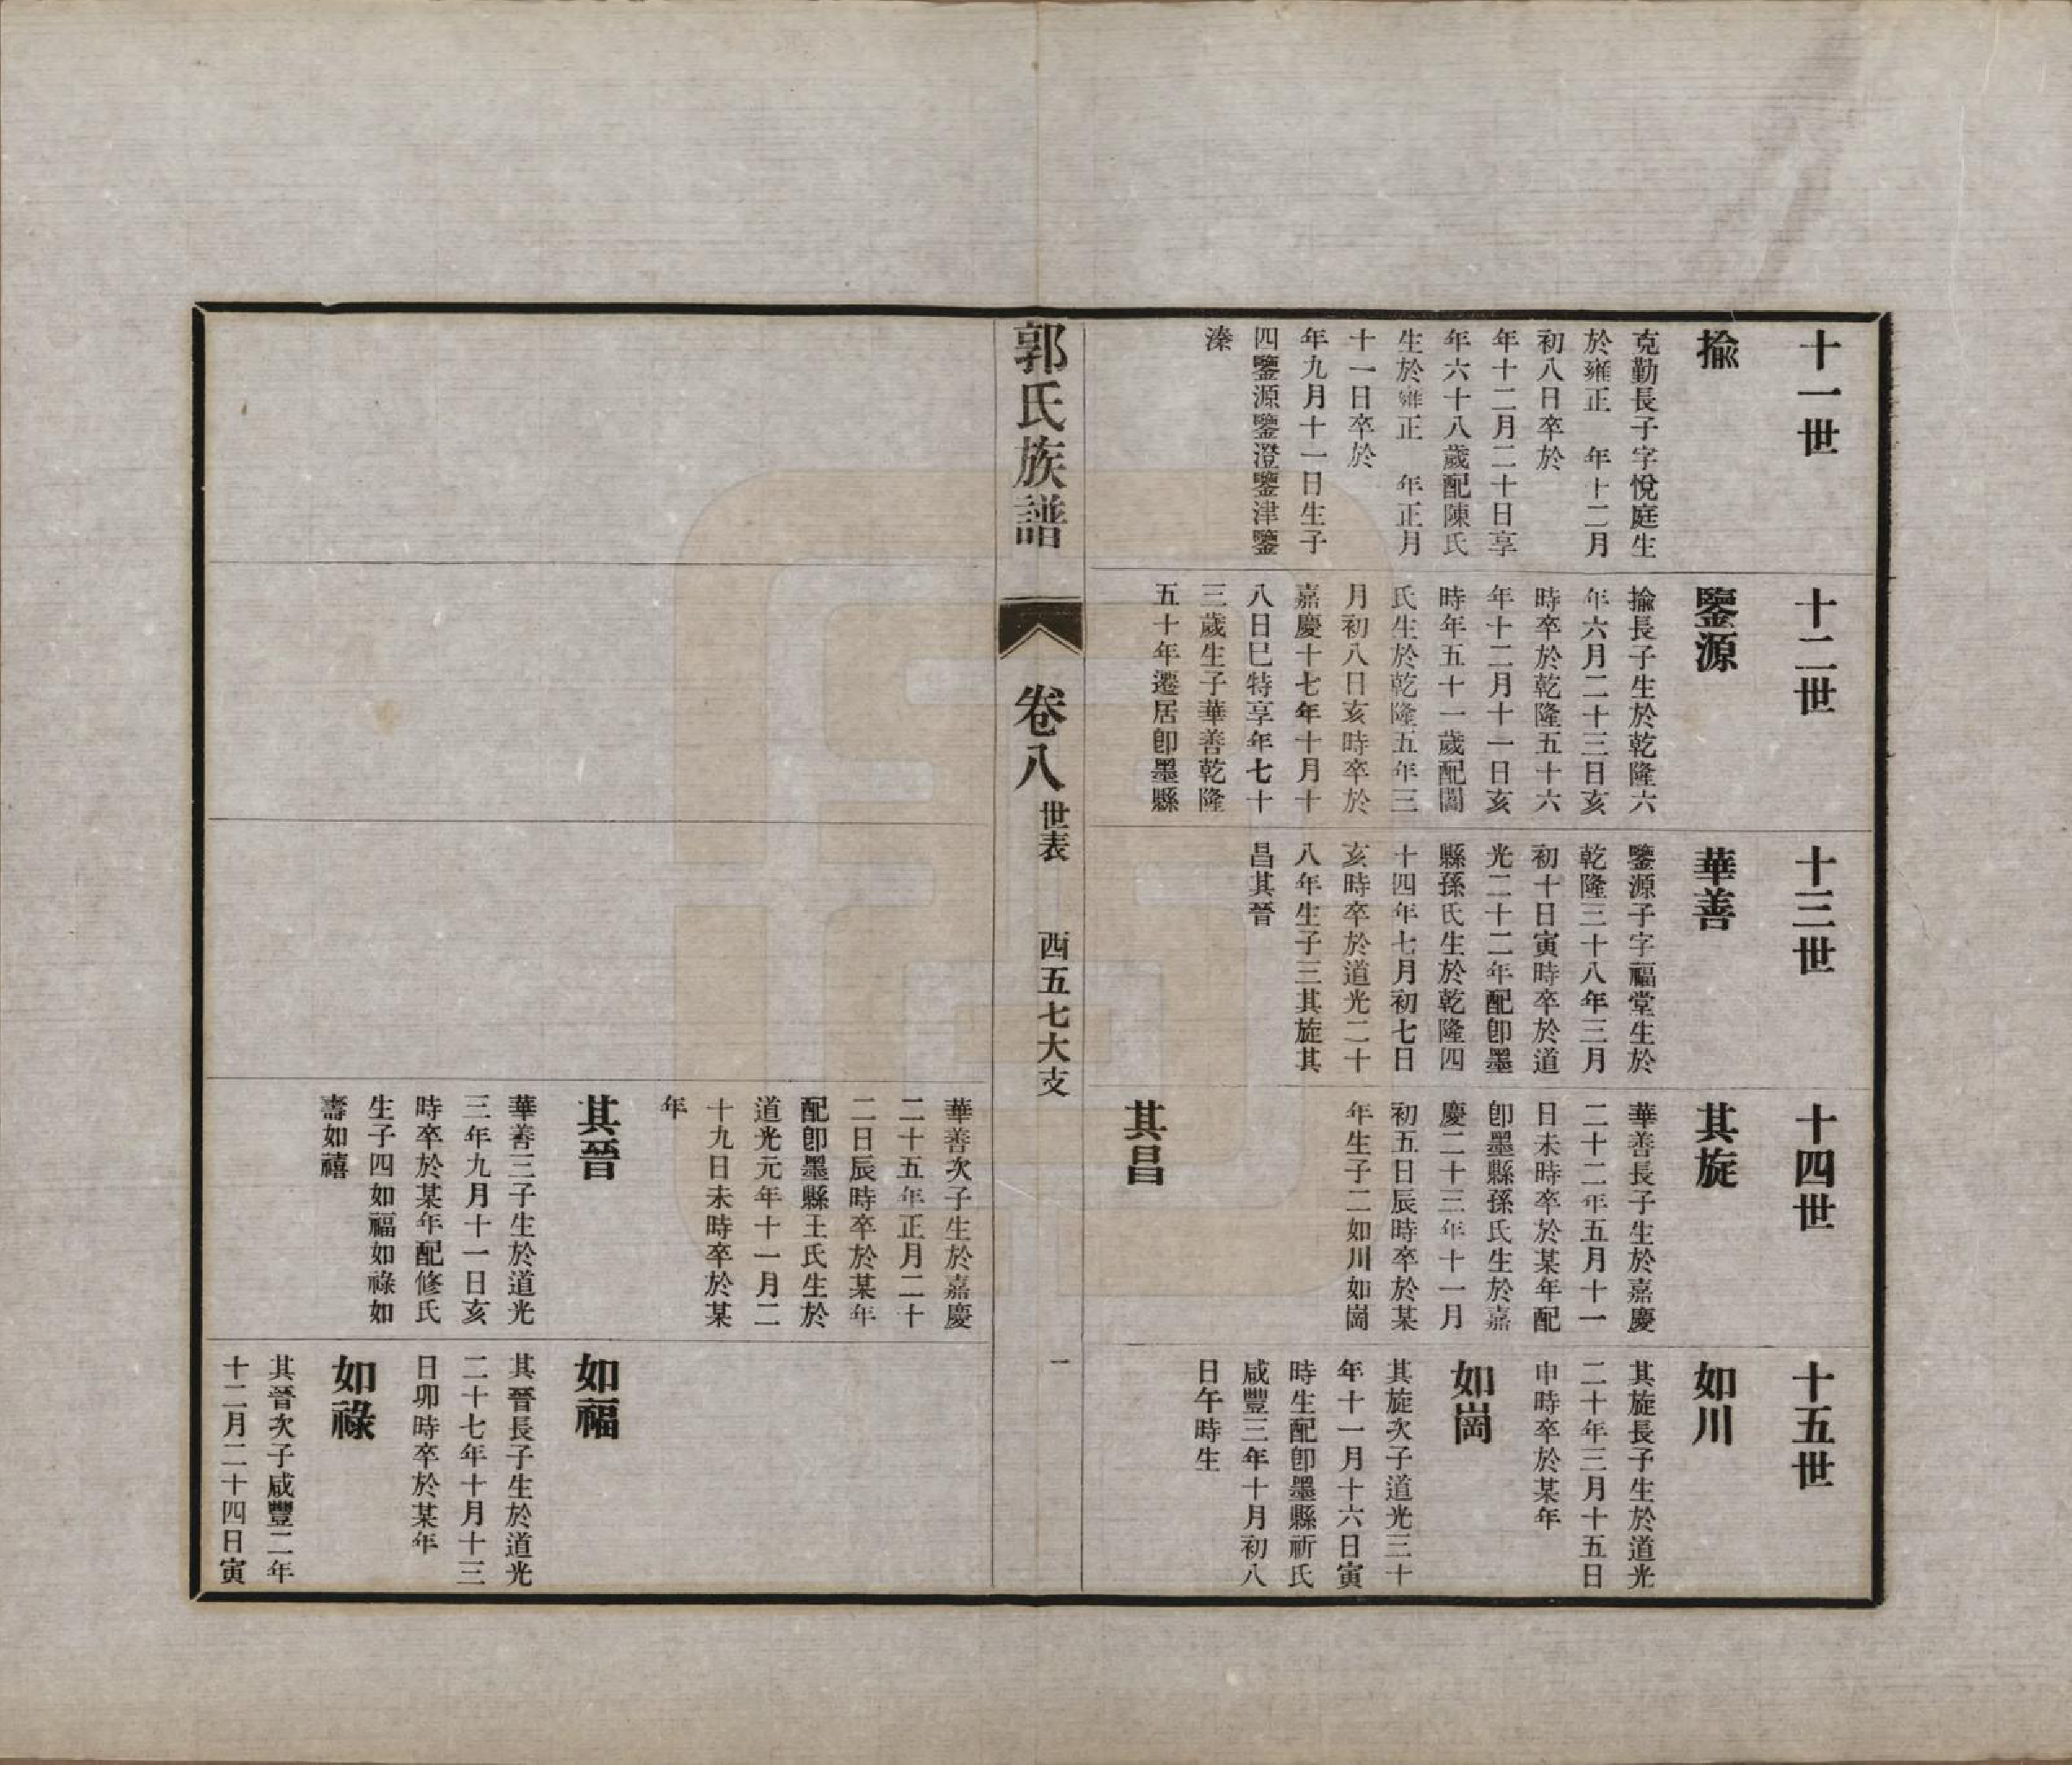 十一世
揄
克勤長子字悅庭生
於雍正　年十二月
初八日卒於
年十二月二十日享
年六十八歲配陳氏
生於雍正　年正月
十一日卒於
年九月十一日生子
四鑒源鑒澄鑒津鑒
溱
十二世
鑒源
揄長子生於乾隆六
年六月二十三日亥
時卒於乾隆五十六
年十二月十一日亥
時年五十一歲配閻
氏生於乾隆五年三
月初八日亥時卒於
嘉慶十七年十月十
八日巳特享年七十
三歲生子華善乾隆
五十年遷居卽墨縣
十三世
華善
鑒源子字福堂生於
乾隆三十八年三月
初十日寅時卒於道
光二十二年配卽墨
縣孫氏生於乾隆四
十四年七月初七日
亥時卒於道光二十
八年生子三其旋其
昌其晉
十四世
其旋
華善長子生於嘉慶
二十二年五月十一
日未時卒於某年配
卽墨縣孫氏生於嘉
慶二十三年十一月
初五日辰時卒於某
年生子二如川如崗
其昌
十五世
如川
其旋長子生於道光
二十年三月十五日
申時卒於某年
如崗
其旋次子道光三十
年十一月十六日寅
時生配卽墨縣祈氏
咸豐三年十月初八
日午時生
郭氏族譜
卷八
世表
西五七大支
一
華善次子生於嘉慶
二十五年正月二十
二日辰時卒於某年
配卽墨縣王氏生於
道光元年十一月二
十九日未時卒於某
年
其晉
華善三子生於道光
三年九月十一日亥
時卒於某年配修氏
生子四如福如祿如
壽如禧
如福
其晉長子生於道光
二十七年十月十三
日卯時卒於某年
如祿
其晉次子咸豐二年
十二月二十四日寅